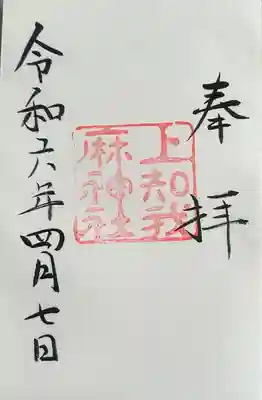 奉拝
上知我
麻神社
令和六年四月七日